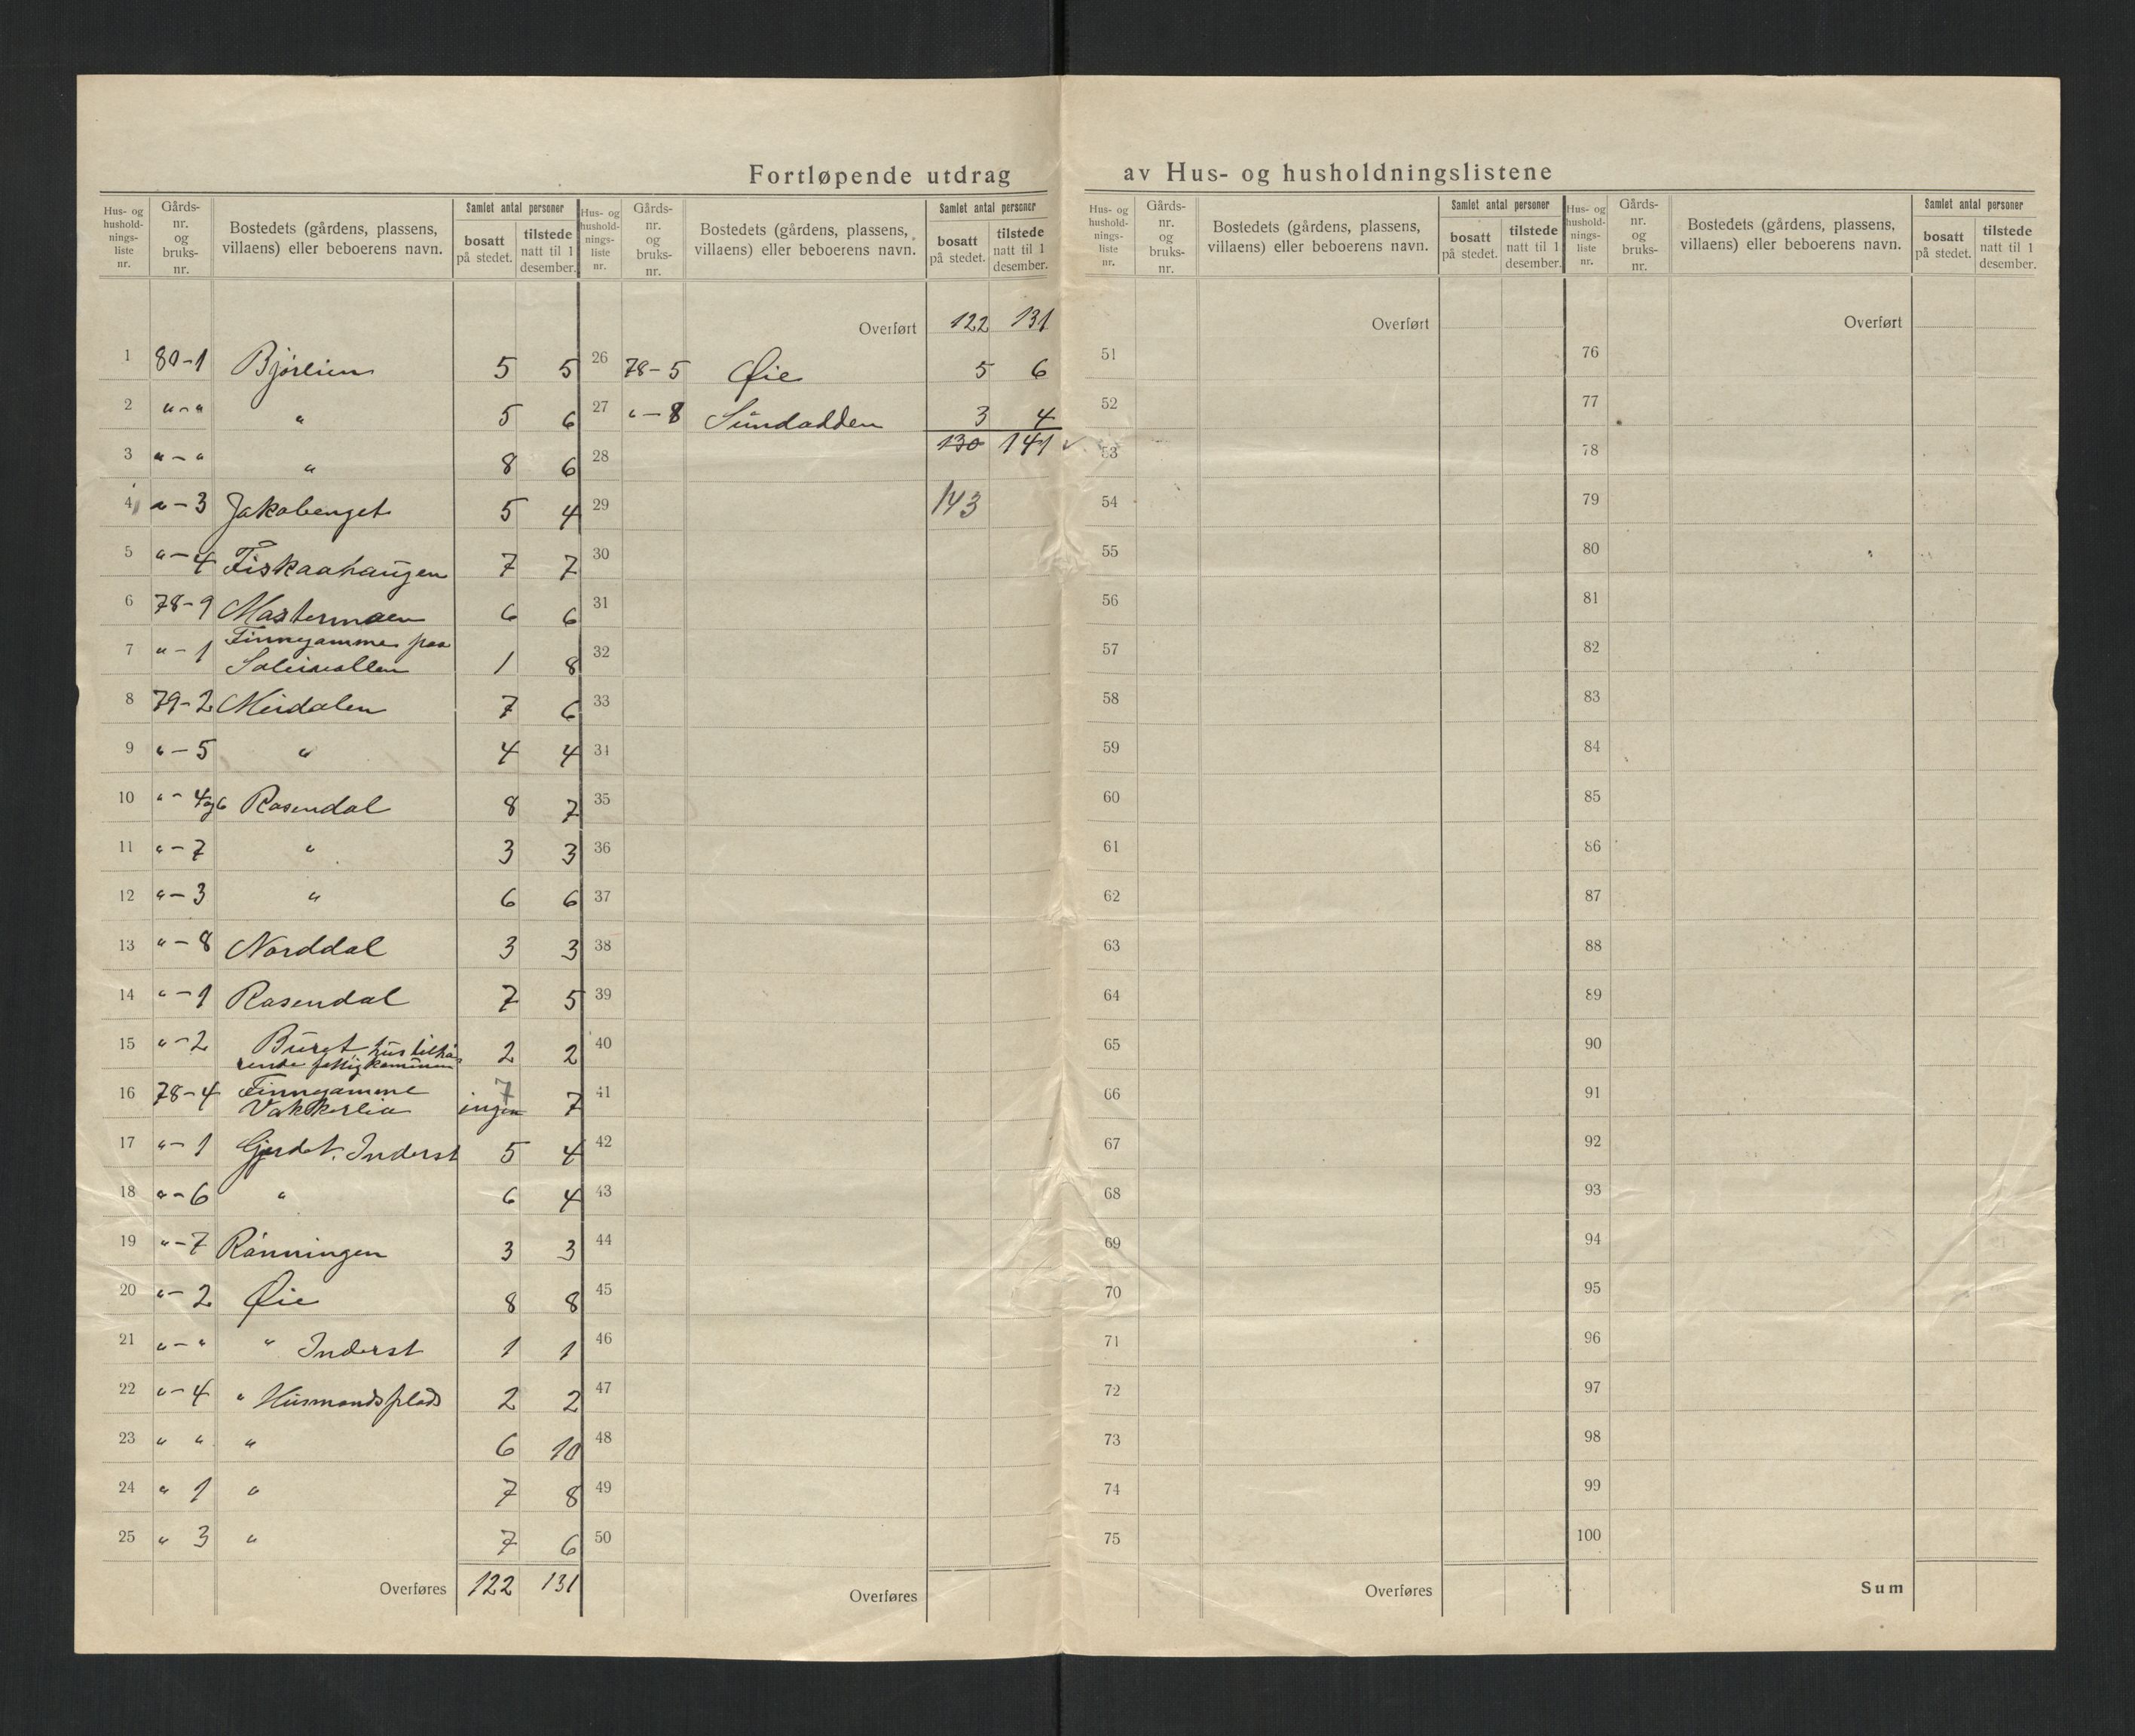 Fortløpende utdrag av Hus- og husholdningslistene
Hus- og hushold-nings-liste nr. Gårds-nr. og bruks-nr. Bostedets (gårdens, plassens, villaens) eller beboerens navn. Samlet antal personer bosatt på stedet. tilstede natt til 1 desember.
1 80-1 Bjørlien 5 5
2 "-" " 5 6
3 "-" " 8 6
4 "-3 Jakobenget 5 4
5 "-4 Fiskaahaugen 7 7
6 78-9 Mastermoen 6 6
7 "-1 Finnegamme paa
1 8
8 79-2 Meidalen 7 6
9 "-5 " 4 4
10 "-4og6 Rosendal 8 7
11 "-7 " 3 3
12 "-3 " 6 6
13 "-8 Norddal 3 3
14 "-1 Rosendal 7 5
15 "-2 Buret hus tilhø
rende fattigkommunen 2 2
16 78-4 Finnegamme 7
Vakkerlia ingen 7
17 "-1 Gjerdet. Inderst 5 4
18 "-6 " 6 4
19 "-7 Rønningen 3 3
20 "-2 Øie 8 8
21 "-" " Inderst 1 1
22 "-4 " Husmandsplads 2 2
23 " " " 6 10
24 " 1 " 7 8
25 " 3 " 7 6
Overføres 122 131
Hus- og hushold-nings-liste nr. Gårds-nr. og bruks-nr. Bostedets (gårdens, plassens, villaens) eller beboerens navn. Samlet antal personer bosatt på stedet. tilstede natt til 1 desember.
Overført 122 131
26 78-5 Øie 5 6
27 "-8 3 4
130 141 ✓
28
29 143
30
31
32
33
34
35
36
37
38
39
40
41
42
43
44
45
46
47
48
49
50
Overføres
Hus- og hushold-nings-liste nr. Gårds-nr. og bruks-nr. Bostedets (gårdens, plassens, villaens) eller beboerens navn. Samlet antal personer bosatt på stedet. tilstede natt til 1 desember.
Overført
51
52
53
54
55
56
57
58
59
60
61
62
63
64
65
66
67
68
69
70
71
72
73
74
75
Overføres
Hus- og hushold-nings-liste nr. Gårds-nr. og bruks-nr. Bostedets (gårdens, plassens, villaens) eller beboerens navn. Samlet antal personer bosatt på stedet. tilstede natt til 1 desember.
Overført
76
77
78
79
80
81
82
83
84
85
86
87
88
89
90
91
92
93
94
95
96
97
98
99
100
Sum